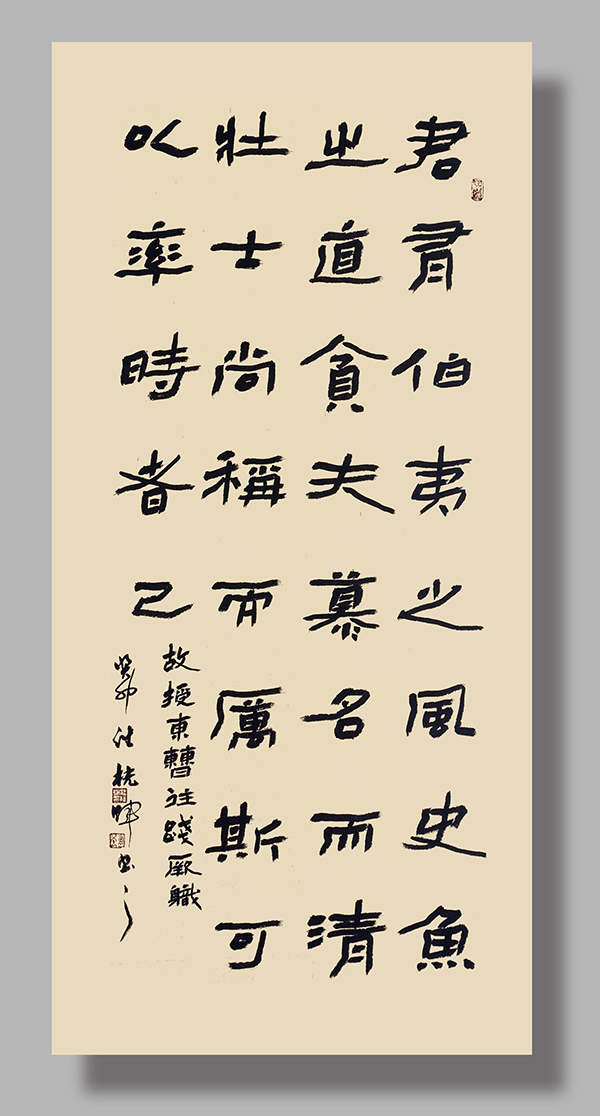 君有伯夷之風史魚
之道貪夫慕名而清
壯士尚稱而厲斯可
以率時者已
故授東曹往踐厥職
癸卯書之